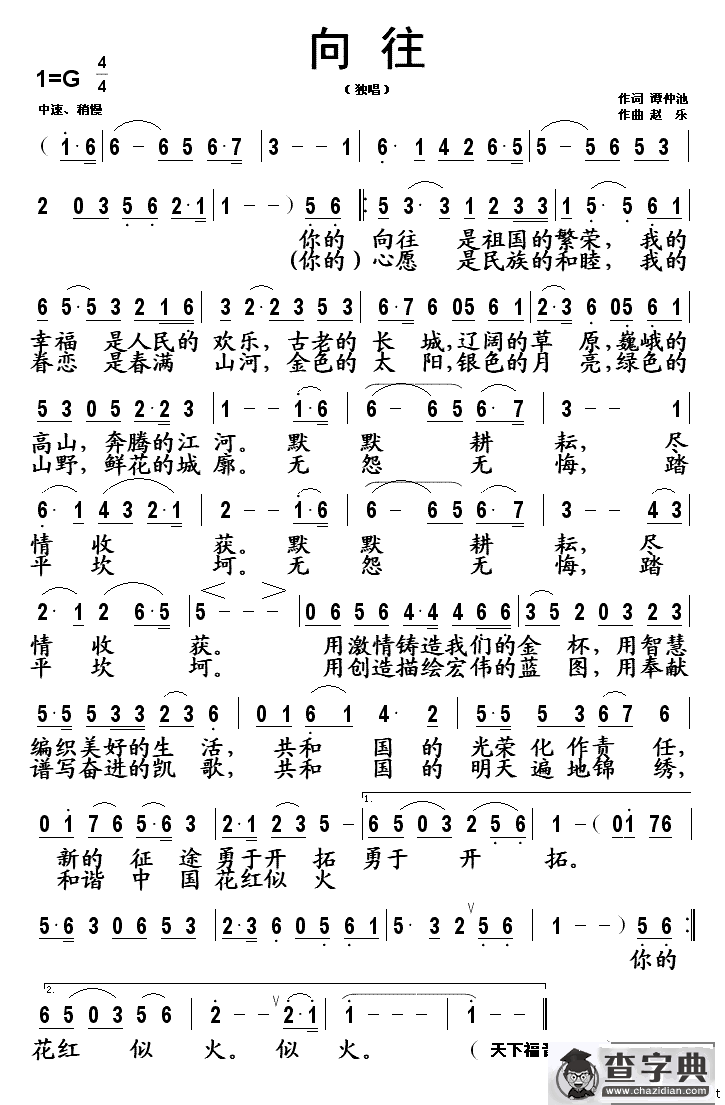 向 往
1=G 4/4
(独唱)
中速、稍慢
作词 谭仲池
作曲 赵 乐
( 1·6 | 6 - 6 5 6·7 | 3 - - 1 | 6· 1 4 2 6·5 | 5 - 5 6 5 3 |
2 0 3 5 6 2·1 | 1 - - ) 5 6 |: 5 3· 3 1 2 3 3 | 1 5· 5 6 1 |
你的 向往 是祖国的繁荣，我的
(你的)心愿 是民族的和睦，我的
6 5·5 3 2 1 6 | 3 2·2 3 5 3 | 6·7 6 05 6 1 | 2·3 6 05 6 1 |
幸福 是人民的 欢乐，古老的 长 城,辽阔的草 原,巍峨的
眷恋 是春满 山河，金色的 太 阳,银色的月 亮,绿色的
5 3 0 5 2·2 3 | 1 - - 1·6 | 6 - 6 5 6· 7 | 3 - - 1 |
高山，奔腾的江 河。默 默 耕 耘，尽
山野，鲜花的城 廓。无 怨 无 悔，踏
6· 1 4 3 2·1 | 2 - - 1·6 | 6 - 6 5 6· 7 | 3 - - 4 3 |
情 收 获。默 默 耕 耘，尽
平 坎 坷。无 怨 无 悔，踏
2· 1 2 6·5 | 5 - - - | 0 6 5 6 4·4 4 6 6 | 3 5 2 0 3 2 3 |
情 收 获。 用激情铸造我们的金 杯，用智慧
平 坎 坷。 用创造描绘宏伟的蓝 图，用奉献
5·5 5 3 3 2 3 6 | 0 1 6 1 4· 2 | 5·5 5 3 6 7 6 |
编织美好的生 活， 共和 国 的 光荣 化 作责 任，
谱写奋进的凯 歌， 共和 国 的 明天 遍 地锦 绣，
0 1 7 6 5·6 3 | 2·1 2 3 5 - | 1. 6 5 0 3 2 5 6 | 1 - ( 01 76 |
新的 征 途 勇于开 拓 勇于 开 拓。
和谐 中 国 花红似 火
5·6 3 0 6 5 3 | 2·3 6 0 5 6 1 | 5· 3 2 V 5 6 | 1 - - ) 5 6 :|
你的
2. 6 5 0 3 5 6 | 2 - - V 2·1 | 1 - - - | 1 - -
花红 似 火。 似 火。
( 天下福音
查字典
www.chazidian.com
t